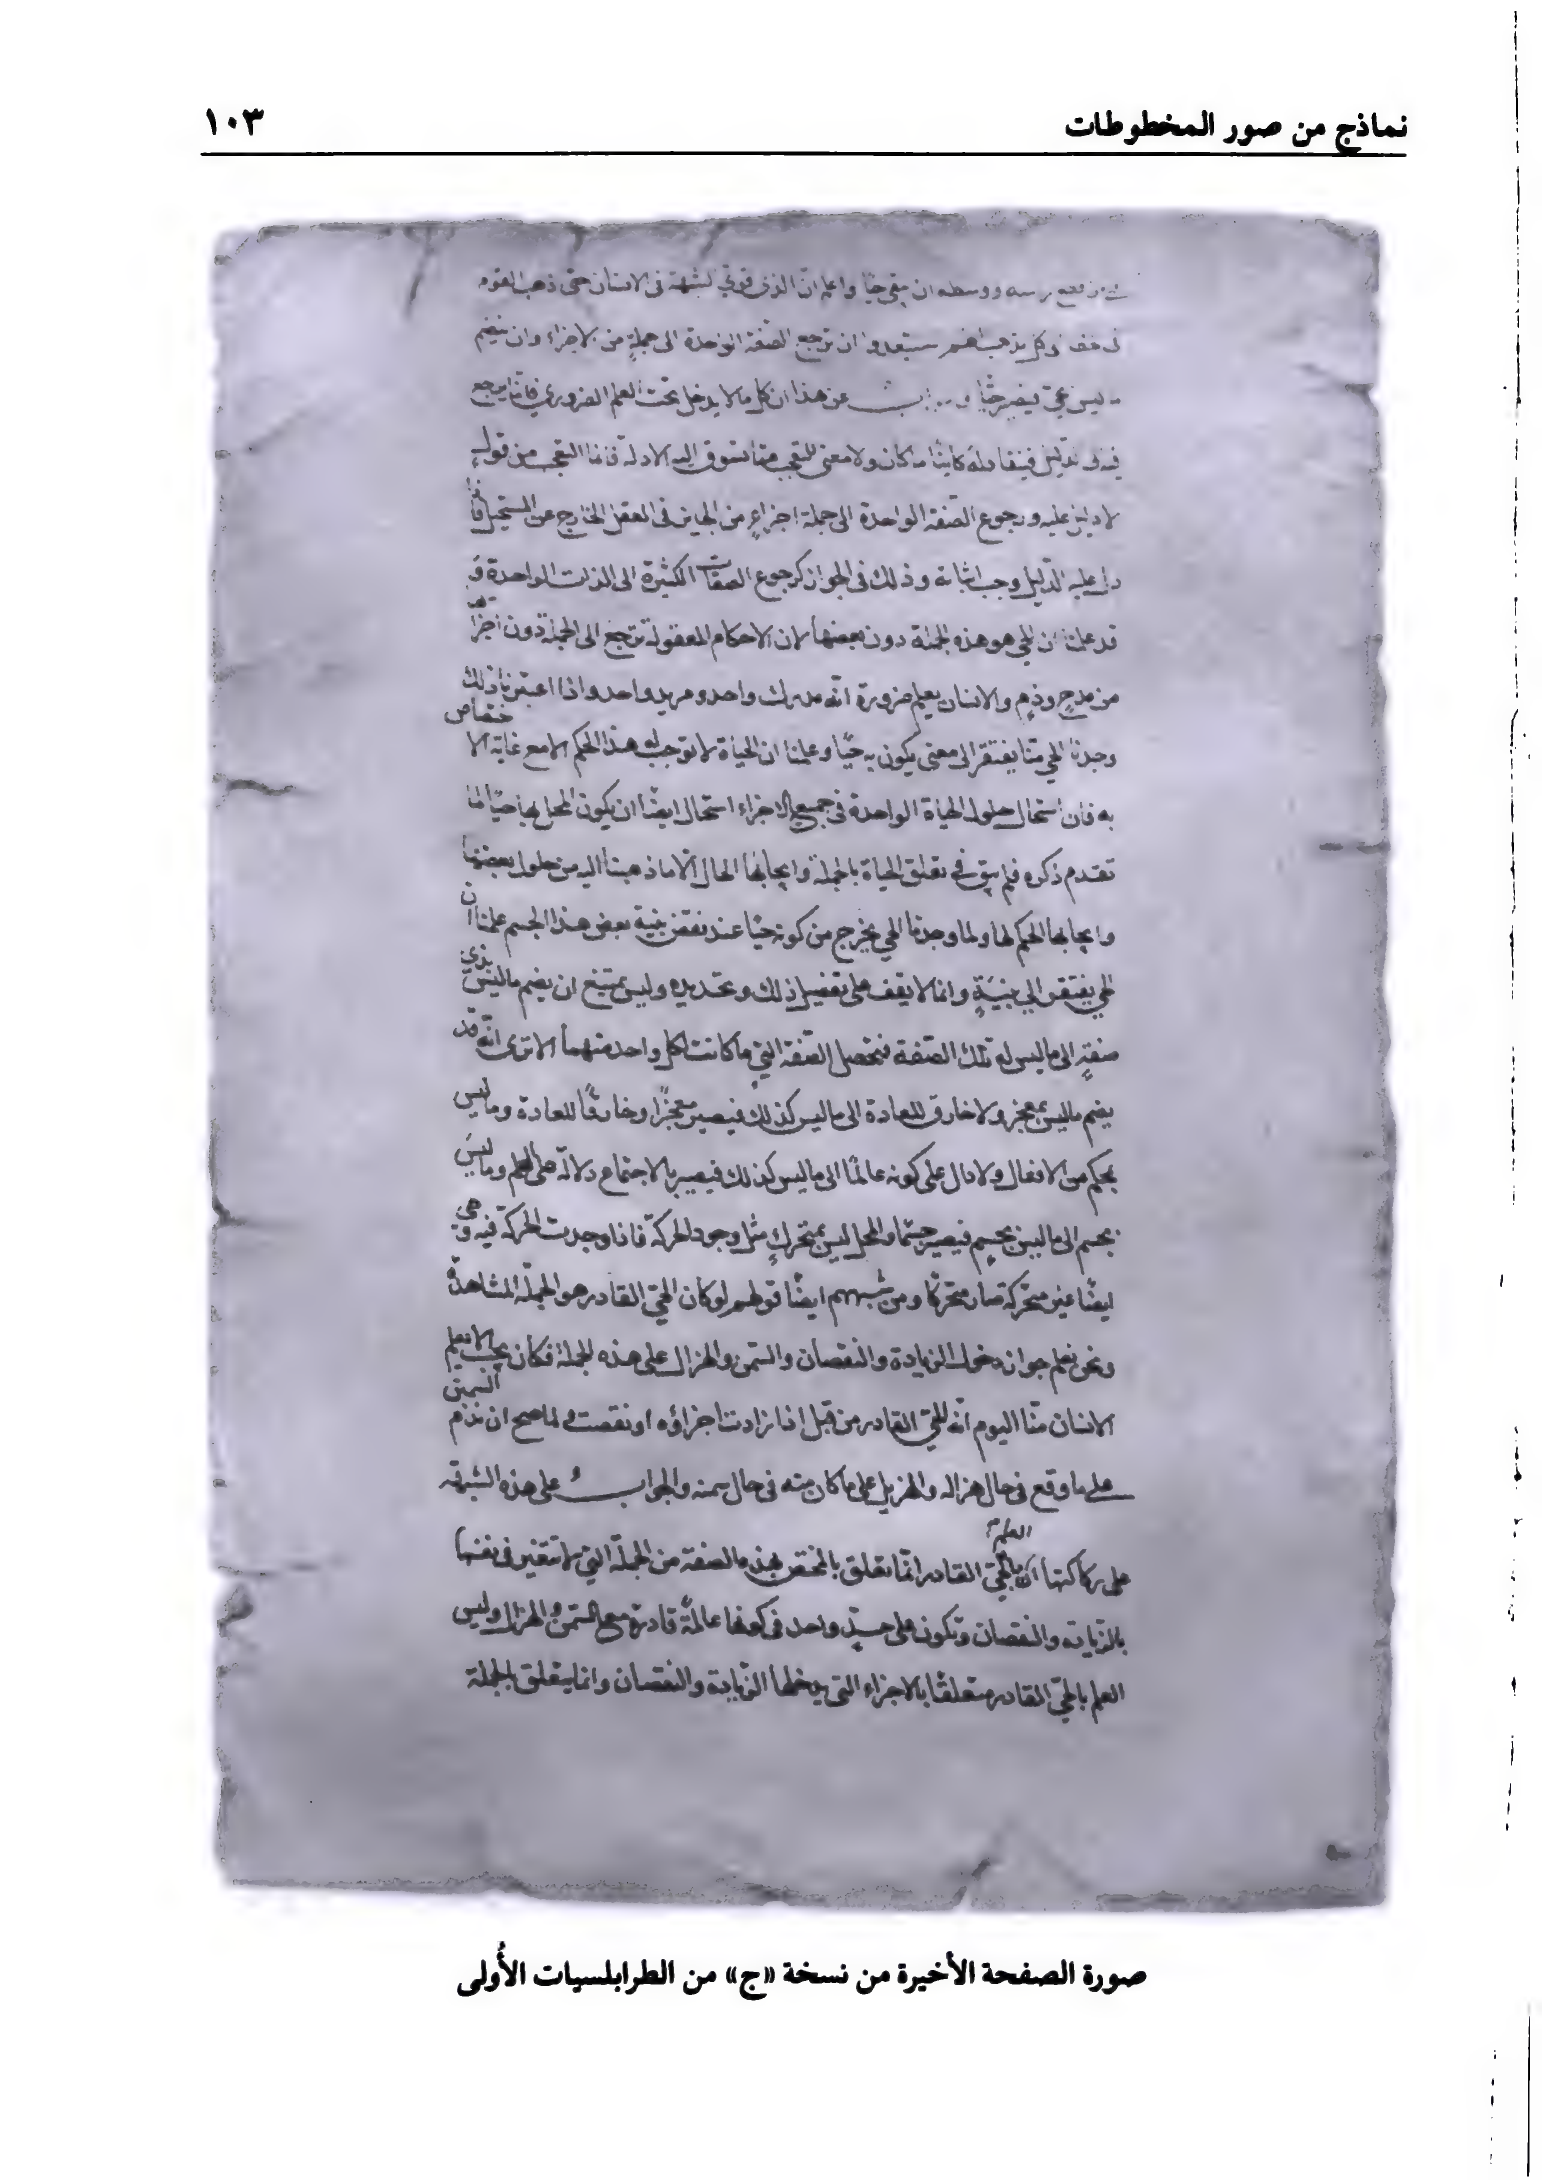 نماذج من صور المخطوطات ١٠٣
قطع رأسه ووسطه ان يبقى حيّا واعلم انّ الذى قوّى الشبهة فى الانسان حتى ذهب القوم
كل مذهب انهم استبعدوا ان ترجع الصّفة الواحدة الى جملةٍ من الاجزاء وان ينضم
ما ليس بحىّ فيصير حيّا عن هذا ان كل ما لا يدخل تحت العلم الضرورى فانّما يرجع
فيه الى الدّليل فينقاد له كاينًا ما كان ولا معنى للتعجب ممّا تسوق اليه الادلة فانما التعجب من قولٍ
لا دليل عليه ورجوع الصّفة الواحدة الى جملة اجزاءٍ من الجايز فى العقل الخارج عن المستحيل فاذا
دل عليه الدّليل وجب اثباته وذلك فى الجواز كرجوع الصفات الكثيرة الى الذات الواحدة و
قد علمنا ان الحى هو هذه الجملة دون بعضها لان الاحكام المعقولة ترجع الى الجملة دون اجزائها
من مدحٍ وذمٍ والانسان يعلم ضرورة انّه مدرك واحد ومريد واحد واذا اعتبرنا ذلك
وجدنا الحى منّا يفتقر الى معنى يكون به حيًّا وعلمنا ان الحياة لا توجب له هذا الحكم الا مع غاية الاختصاص
به فان استحال حلول الحياة الواحدة فى جميع الاجزاء استحال ايضًا ان يكون المحل بها حيّا لما
تقدم ذكره فلم يبق فى تعلق الحياة بالجملة وايجابها الحال الّا ما ذهبنا اليه من حلول بعضها
وايجابها الحكم لها ولما وجدنا الحى يخرج من كونه حيّا عند نقض بنية بعض هذا الجسم علمنا ان
الحى يفتقر الى بنيةٍ وانما لا يقف على تفصيل ذلك وتحديده وليس بممتنع ان يضم ما ليس بذى
صفةٍ الى ما ليس له تلك الصّفة فتحصل الصّفة التى ما كانت لكل واحد منهما الا ترى انّه قد
يضم ما ليس بمعجز ولا خارق للعادة الى ما ليس كذلك فيصير معجزًا وخارقًا للعادة وما ليس
بحكم من الافعال ولا دال على كونه عالمًا الى ما ليس كذلك فيصير بالاجتماع دلالة على العلم وما ليس
بجسم الى ما ليس بجسمٍ فيصير جسمًا والمحل ليس بمتحركٍ مثل وجود الحركة فاذا وجدت الحركة فيه وهى
ايضًا غير متحركة صار متحركًا ومن شبههم ايضًا قولهم لو كان الحىّ القادر هو الجملة المشاهدة
ونحن نعلم جواز دخول الزيادة والنقصان والسّمن والهزال على هذه الجملة فكان يجب الا يعلم
الانسان منّا اليوم انّه الحىّ القادر من قبل اذا زادت اجزاؤه او نقصت ولما صح ان نذم السمين
على ما وقع فى حال هزاله والهزيل على ما كان منه فى حال سمنه والجواب على هذه الشبهة
على ركاكتها انّ العلم بالحىّ القادر انّما تعلق بالمختص بهذه الصفة من الجملة التى لا تتغير فى نفسها
بالزيادة والنقصان وتكون على حدٍّ واحد فى كونها عالمة قادرة مع السّمن والهزال وليس
العلم بالحىّ القادر متعلقًا بالاجزاء التى يدخلها الزّيادة والنقصان وانما يتعلق بالجملة
صورة الصفحة الأخيرة من نسخة «ج» من الطرابلسيات الأُولى